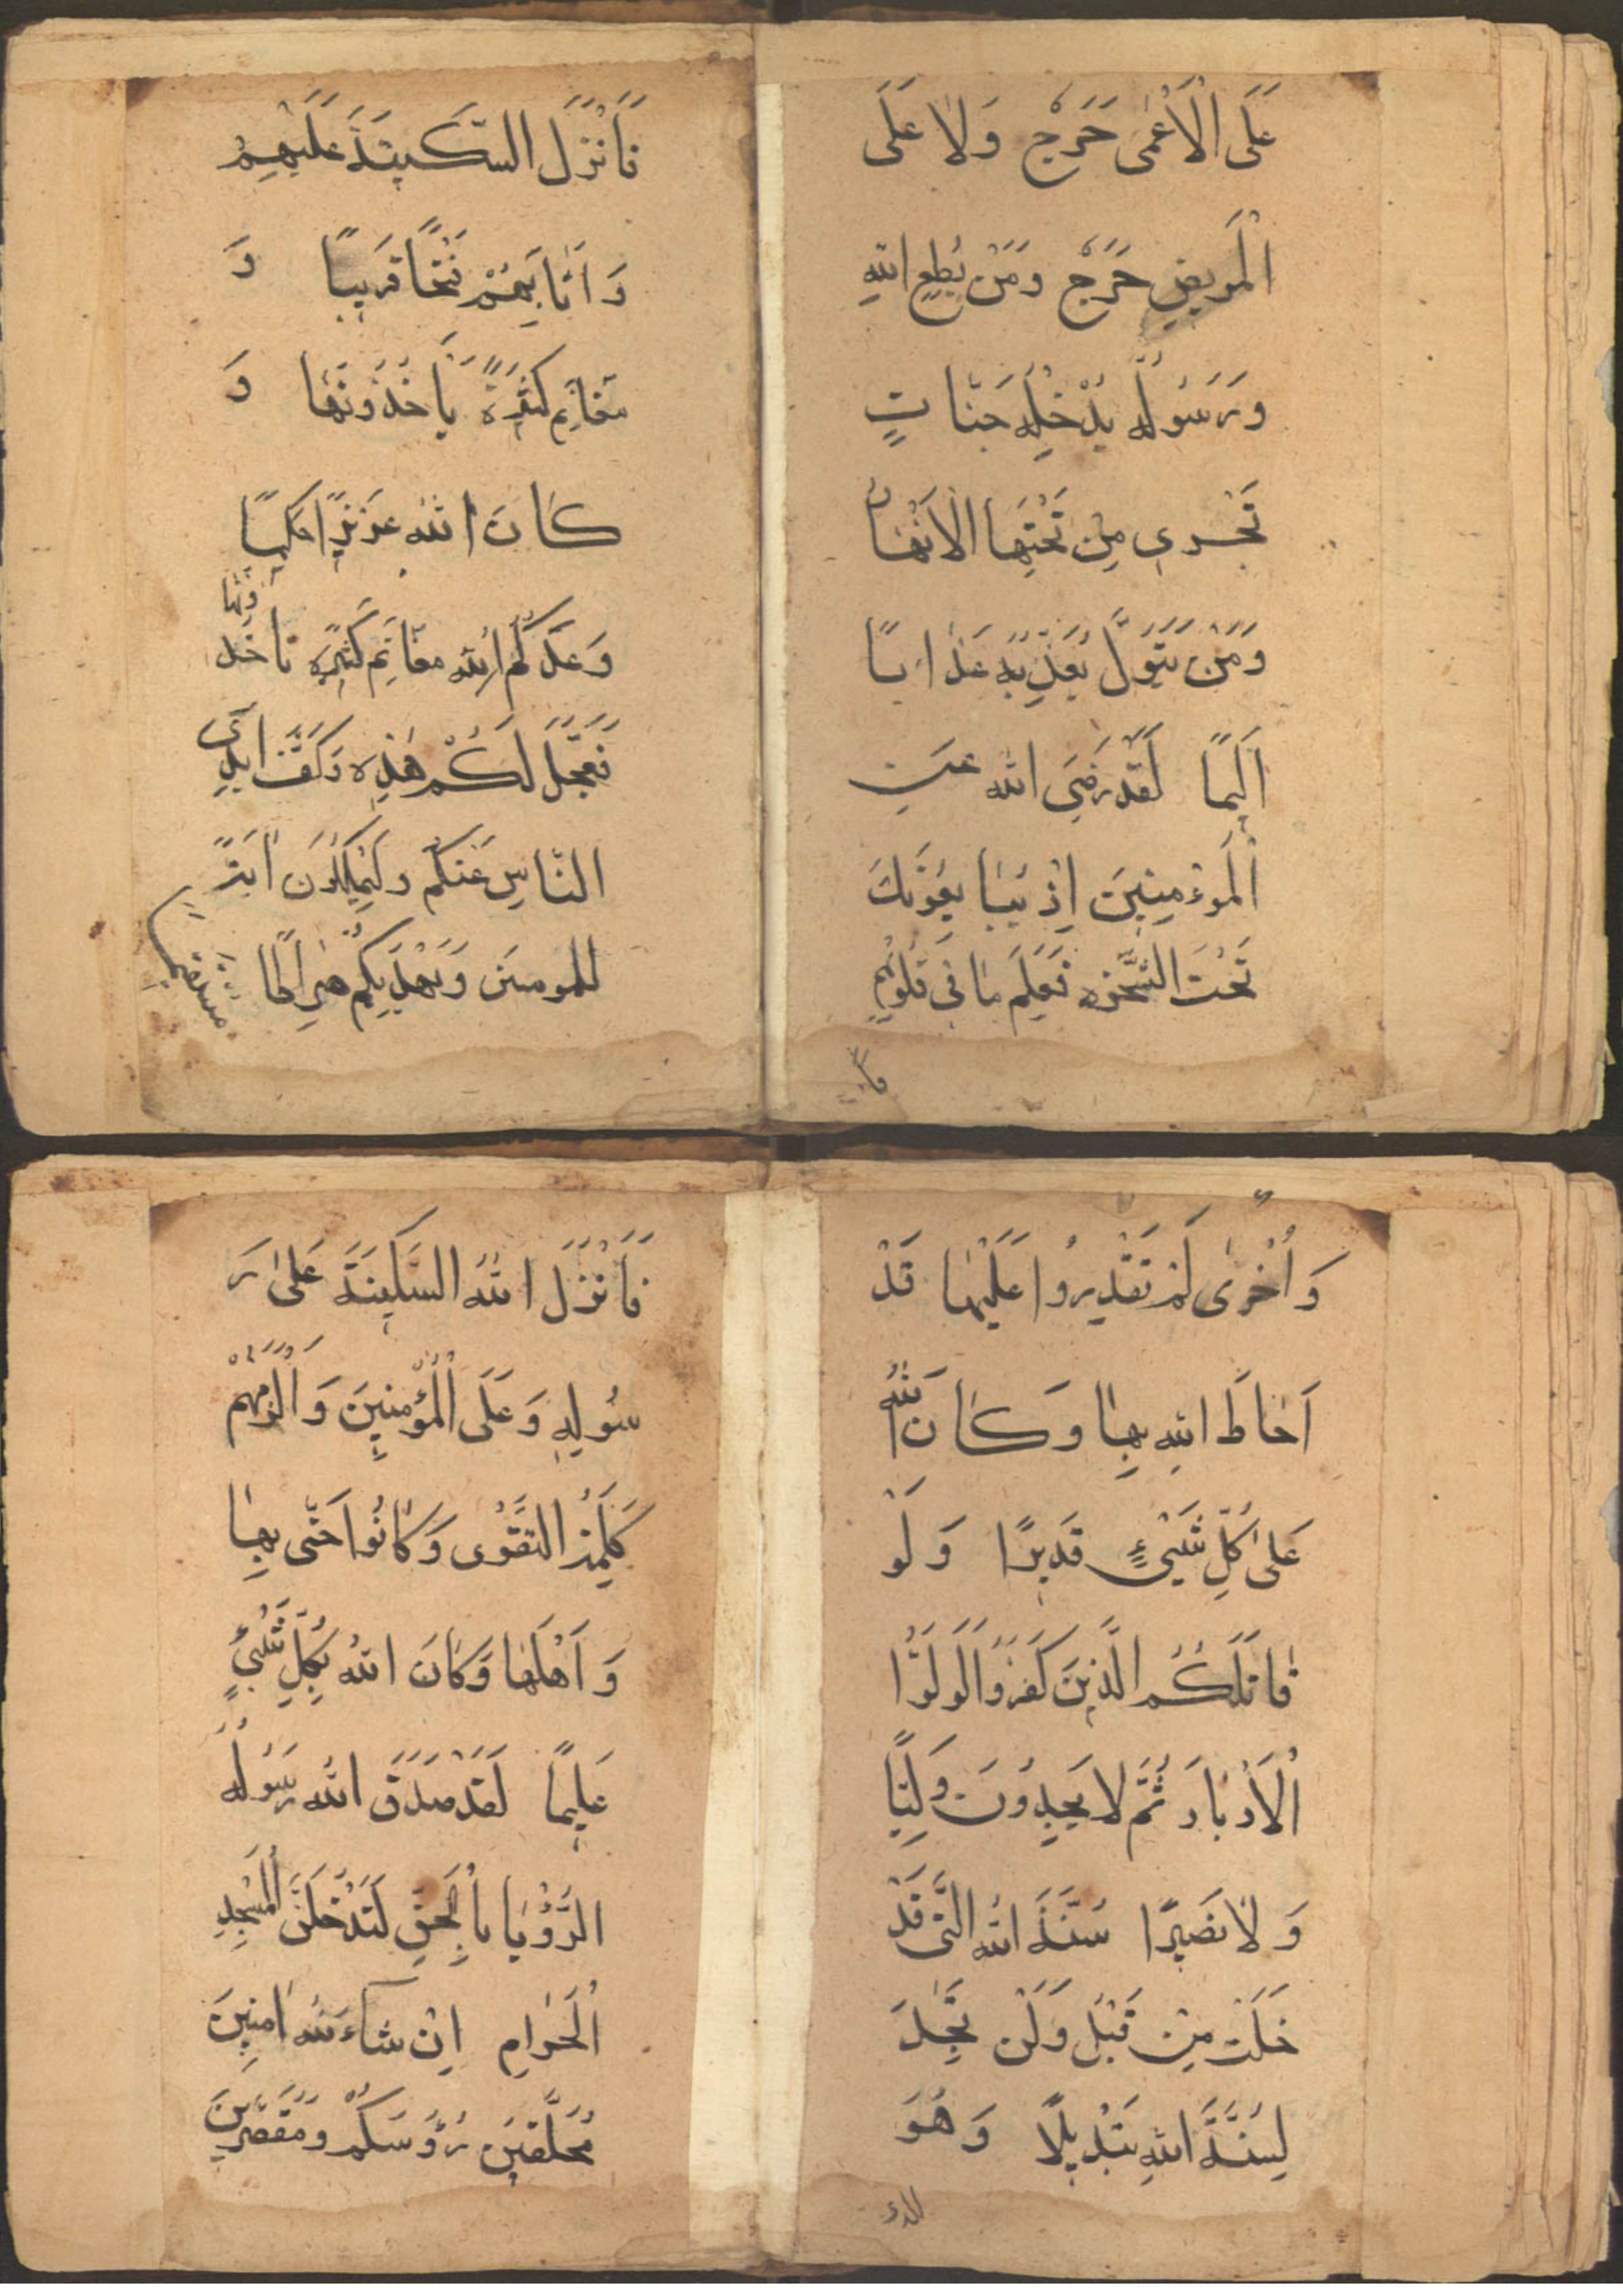 عَلَى الْاَعْمٰى حَرَجٌ وَلَا عَلَى
الْمَرِيضِ حَرَجٌ وَمَنْ يُطِعِ اللهِ
وَرَسُولُه يُدْخِلْه جَنَّاتٍ
تَجْرِى مِنْ تَحْتِهَا الْاَنْهَارُ
وَمَنْ يَتَوَلَّ يُعَذِّبْهُ عَذَابًا
اَلِيمًا لَقَدْ رَضِىَ الله عَنِ
الْمُوْمِنِينَ اِذْ يُبَايِعُونَكَ
تَحْتَ الشَّجَرَه فَعَلِمَ مَا فِى قُلُوبِهِمْ
فا
فَاَنْزَلَ السَّكِينَةَ عَلَيْهِمْ
وَاَثَابَهُمْ فَتْحًا قَرِيبًا وَ
مَغَانِم كَثِيرَةً يَاْخُذُونَهَا وَ
كَانَ الله عَزِيزًا حَكِيمًا
وَعَدَكُمُ الله مَغَانِمَ كَثِيرَةً تَاخُذُونَهَا
فَعَجَّلَ لَكُمْ هٰذِه وَكَفَّ اَيْدِىَ
النَّاسِ عَنْكُمْ وَلِيَكُونَ اٰيَةً
لِلمومنين وَيَهْدِيَكُمْ صِرَاطًا مُسْتَقِيمًا
وَاُخْرٰى لَمْ تَقْدِرُوا عَلَيْهَا قَدْ
اَحَاطَ اللهِ بِهَا وَكَانَ اللهُ
عَلٰى كُلِّ شَىْءٍ قَدِيرًا وَلَوْ
قَاتَلَكُمُ الَّذِينَ كَفَرُوا لَوَلَّوُا
الْاَدْبَارَ ثُمَّ لَا يَجِدُونَ وَلِيًّا
وَلَا نَصِيرًا سُنَّةَ الله الَّتِى قَدْ
خَلَتْ مِنْ قَبْلُ وَلَنْ تَجِدَ
لِسُنَّةِ اللهِ تَبْدِيلًا وَهُوَ
الذى
فَاَنْزَلَ اللهُ السَّكِينَةَ عَلٰى رَ
سُولِهِ وَعَلَى الْمُؤْمِنِينَ وَاَلْزَمَهُمْ
كَلِمَةَ التَّقْوٰى وَكَانُوا اَحَقّ بِهَا
وَاَهْلَهَا وَكَانَ اللهُ بِكُلِّ شَىْءٍ
عَلِيمًا لَقَدْ صَدَقَ اللهُ رَسُولَهُ
الرُّؤْيَا بِالْحَقِّ لَتَدْخُلُنَّ الْمَسْجِدِ
الْحَرَامِ اِنْ شَاءَ الله اٰمِنِينَ
مُحَلِّقِينَ رُؤُسَكُمْ وَمُقَصِّرِينَ